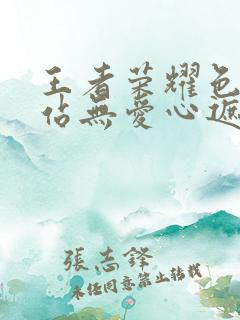 王者荣耀色
佔無愛心遮
張志鋒
未经同意禁止转载